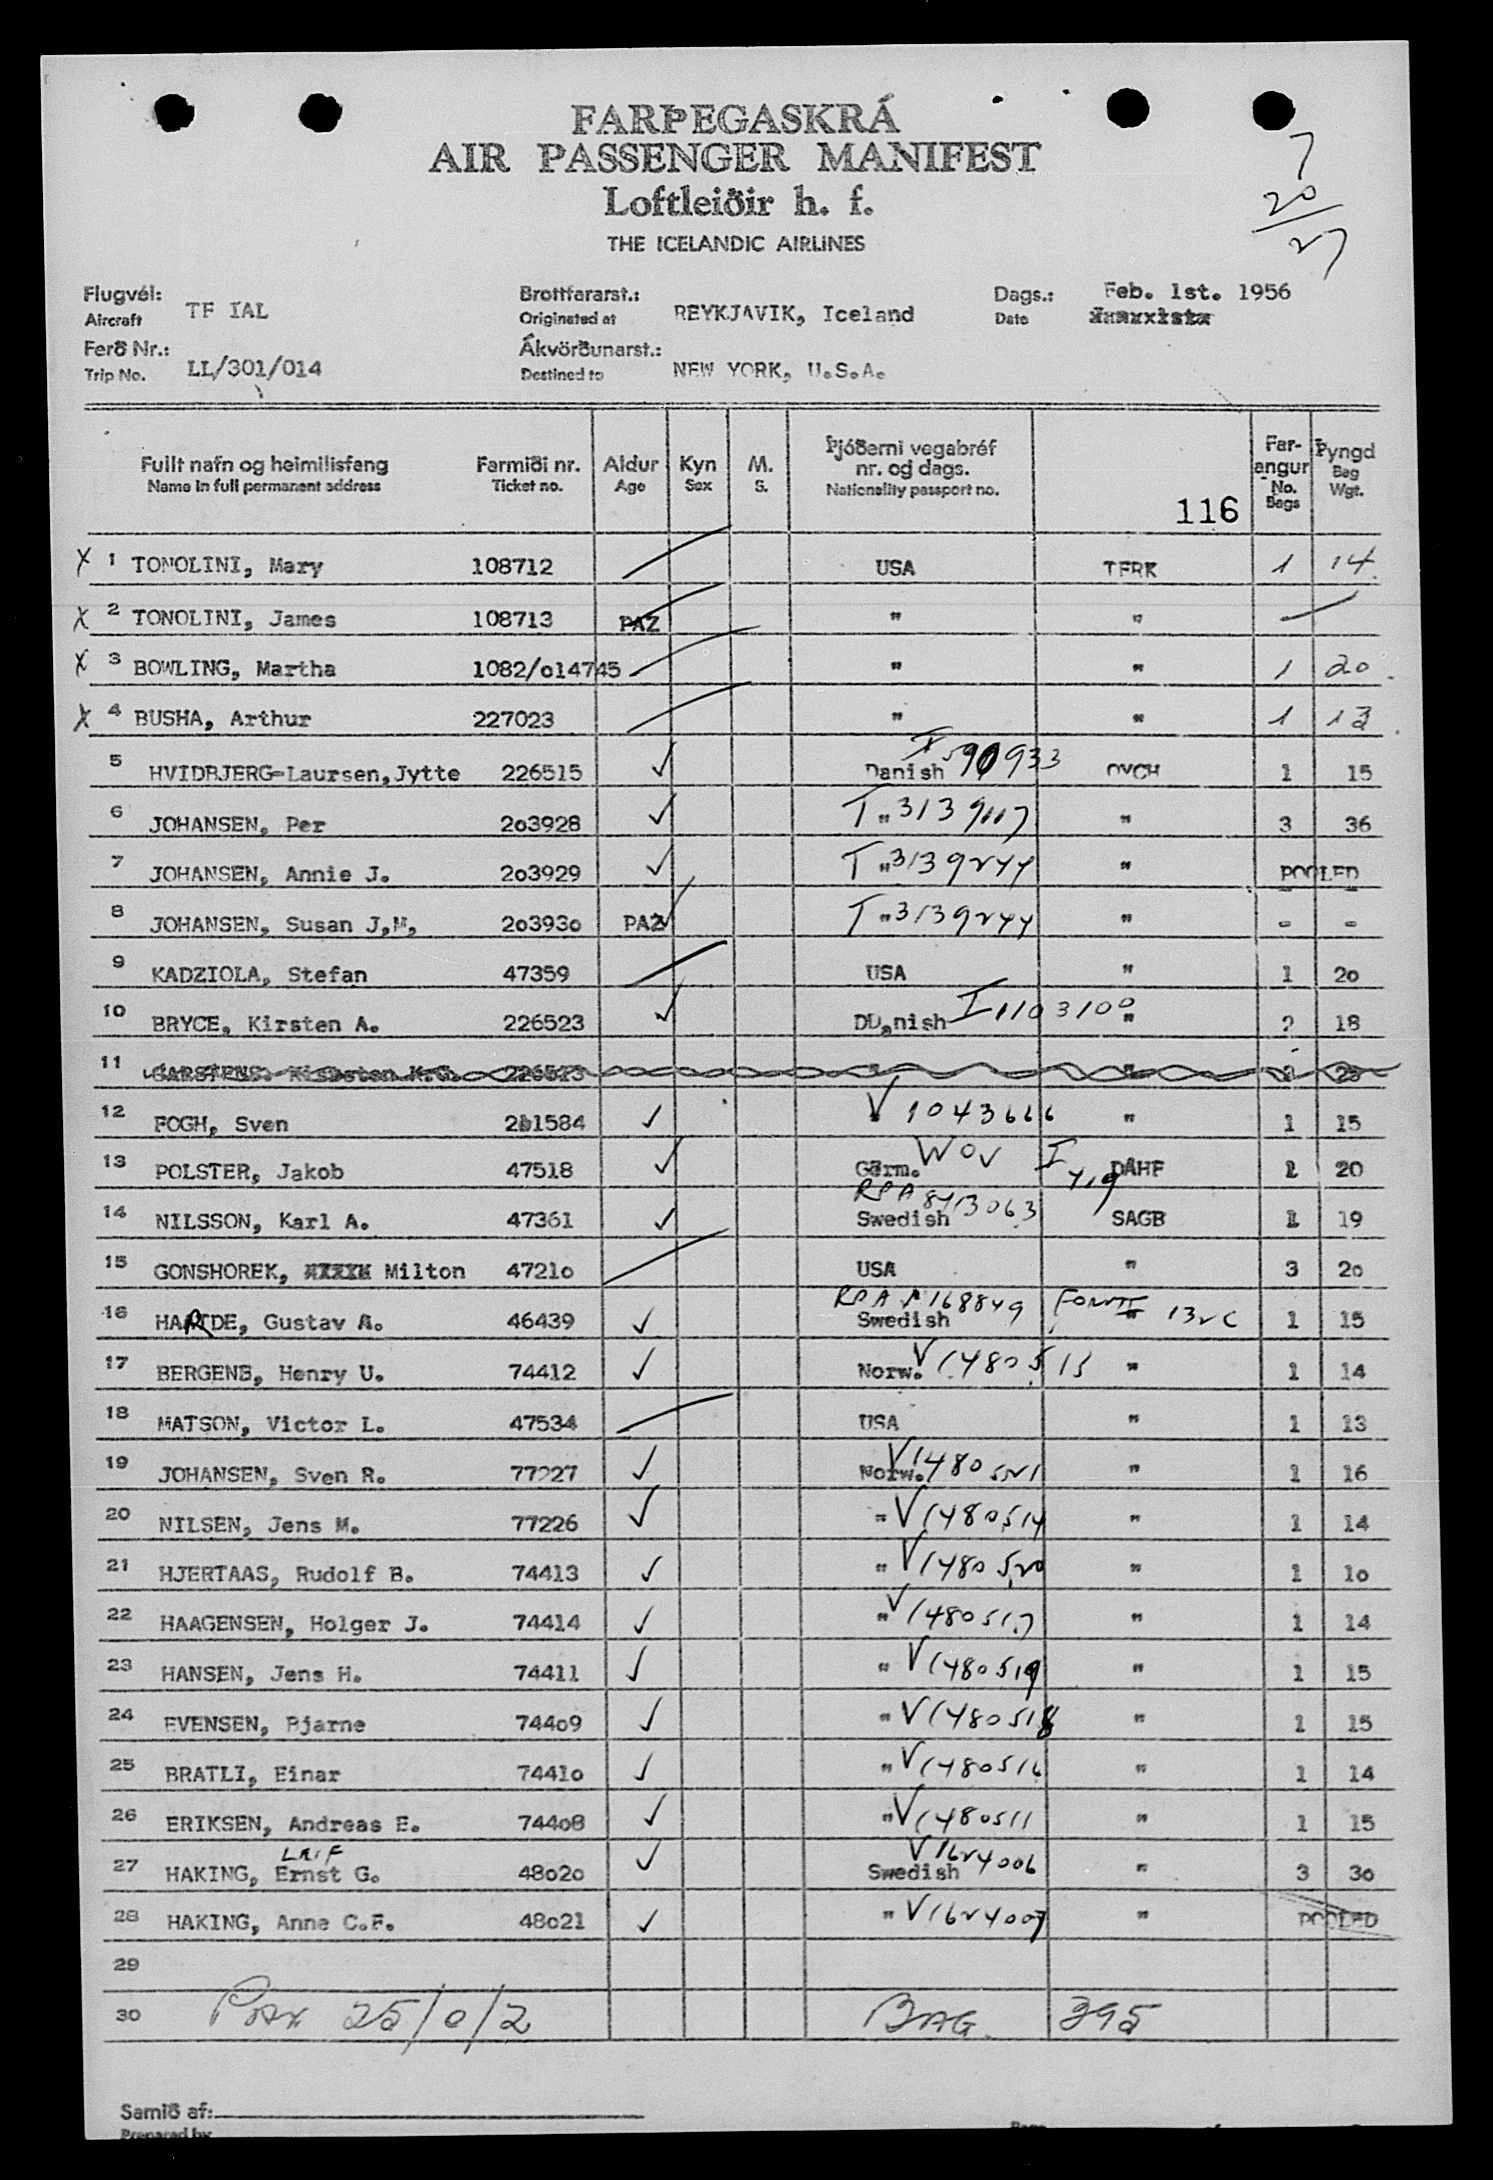 FARÞEGASKRÁ
AIR PASSENGER MANIFEST
Loftleiðir h. f.
THE ICELANDIC AIRLINES
7
20
27
Flugvél: TF IAL Brottfararst.: REYKJAVIK, Iceland Dags.: Feb. 1st. 1956
Aircraft Originated at Date
Ferð Nr.: LL/301/014 Ákvörðunarst.: NEW YORK, U.S.A.
Trip No. Destined to
Fullt nafn og heimilisfang Farmiði nr. Aldur Kyn M. Þjóðerni vegabréf nr. og dags. Far-angur Þyngd
Name in full permanent address Ticket no. Age Sex S. Nationality passport no. 116 No. Bags Bag Wgt.
X 1 TONOLINI, Mary 108712 USA TFRK 1 14
X 2 TONOLINI, James 108713 PAZ " "
X 3 BOWLING, Martha 1082/o14745 " " 1 20
X 4 BUSHA, Arthur 227023 " " 1 13
5 HVIDBJERG-Laursen,Jytte 226515 ✓ Danish OVCH 1 15
6 JOHANSEN, Per 2o3928 ✓ T " 3139117 " 3 36
7 JOHANSEN, Annie J. 2o3929 ✓ T " 3139244 " POOLED
8 JOHANSEN, Susan J,M, 2o393o PAZ ✓ T " 3139244 " - -
9 KADZIOLA, Stefan 47359 USA " 1 2o
10 BRYCE, Kirsten A. 226523 ✓ DDanish I 1103100 " 2 18
11 226523 "
12 FOGH, Sven 2b1584 ✓ V 1043666 " 1 15
13 POLSTER, Jakob 47518 ✓ Germ. WOV I 419 DAHF 1 20
14 NILSSON, Karl A. 47361 ✓ RPA 8413063 Swedish SAGB 1 19
15 GONSHOREK, Milton 4721o USA " 3 2o
16 HARTDE, Gustav A. 46439 ✓ Swedish " 132C 1 15
17 BERGENE, Henry U. 74412 ✓ Norw. V1480515 " 1 14
18 MATSON, Victor L. 47534 USA " 1 13
19 JOHANSEN, Sven R. 77227 ✓ Norw. V1480521 " 1 16
20 NILSEN, Jens M. 77226 ✓ " V1480514 " 1 14
21 HJERTAAS, Rudolf B. 74413 ✓ " V1480520 " 1 1o
22 HAAGENSEN, Holger J. 74414 ✓ " V1480517 " 1 14
23 HANSEN, Jens H. 74411 ✓ " V1480519 " 1 15
24 EVENSEN, Bjarne 744o9 ✓ " V1480518 " 1 15
25 BRATLI, Einar 7441o ✓ " V1480516 " 1 14
26 ERIKSEN, Andreas E. 744o8 ✓ " V1480511 " 1 15
27 HAKING, Leif Ernst G. 48o2o ✓ Swedish V1624006 " 3 3o
28 HAKING, Anne C.F. 48o21 ✓ " V1624007 " POOLED
29
30 Pax 25/0/2 BAG. 395
Samið af:
Prepared by